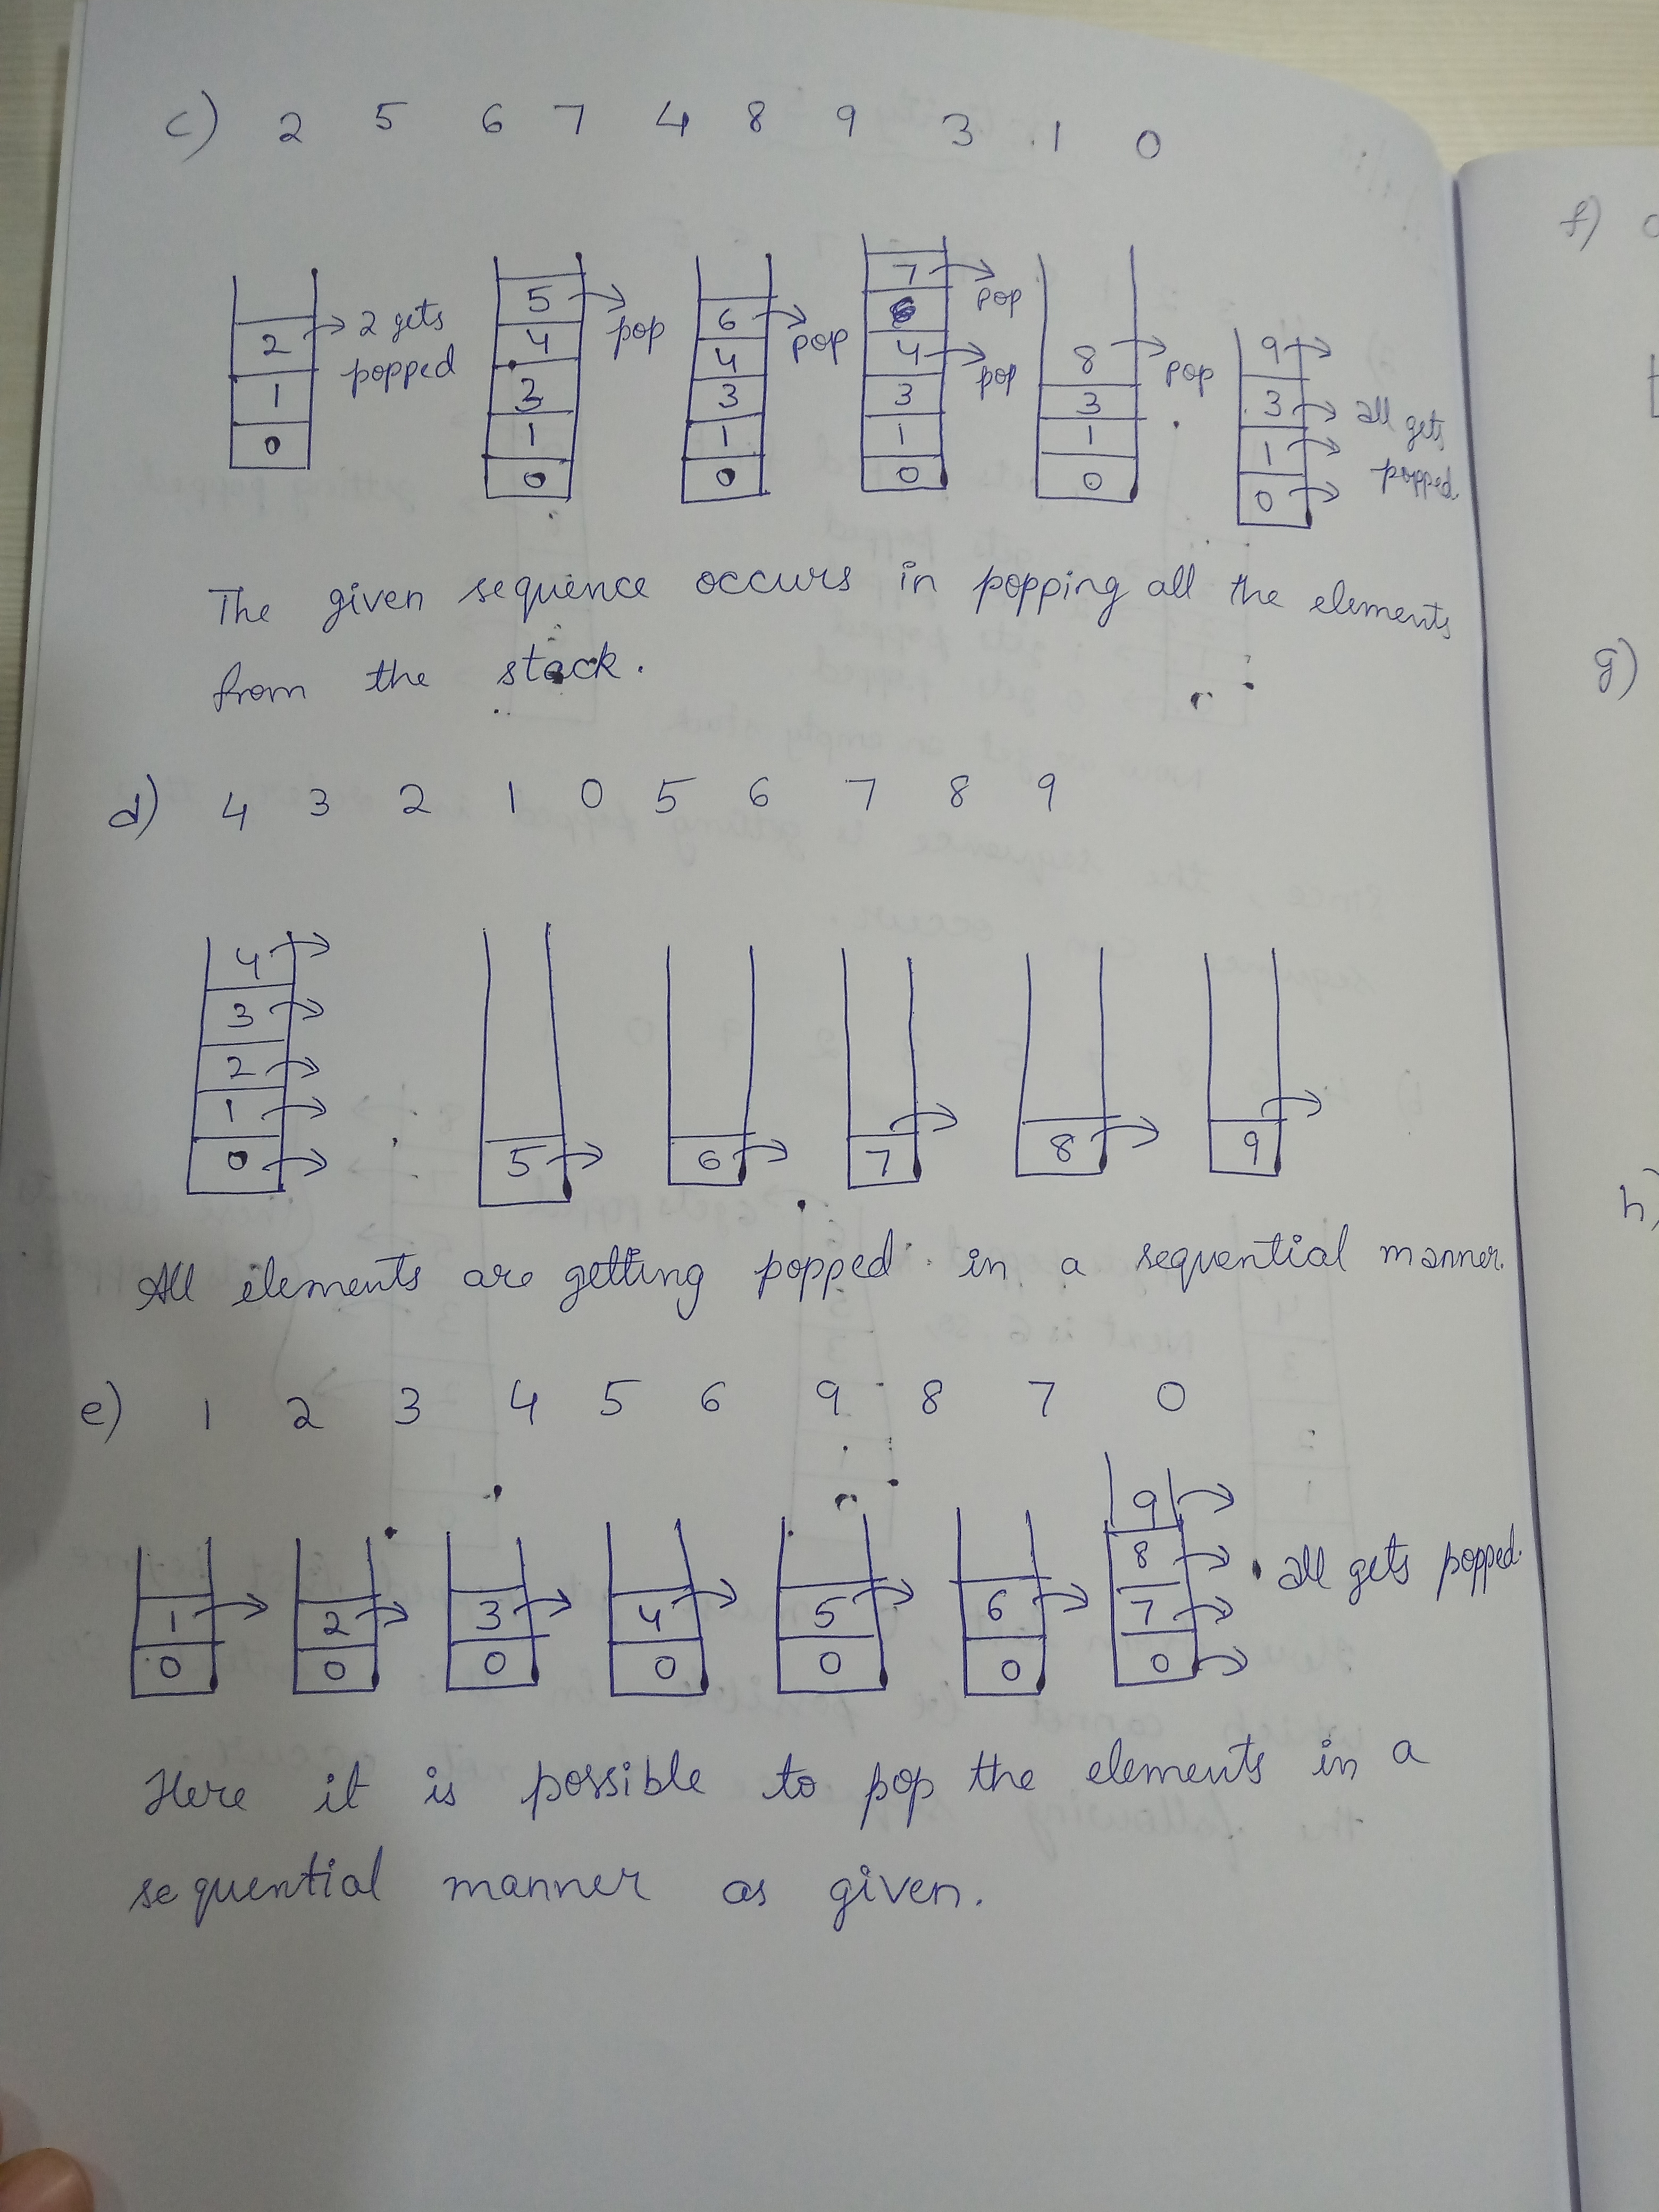 c) 2 5 6 7 4 8 9 3 1 0
2 → 2 gets
popped
1
0
5 → pop
4
3
1
0
6 → pop
4
3
1
0
7 → pop
6
4 → pop
3
1
0
8 → pop
3
1
0
9 →
3 → all gets
1 → popped.
0 →
The given sequence occurs in popping all the elements
from the stack.
d) 4 3 2 1 0 5 6 7 8 9
4 →
3 →
2 →
1 →
0 →
5 →
6 →
7 →
8 →
9 →
All elements are getting popped in a sequential manner.
e) 1 2 3 4 5 6 9 8 7 0
1 →
0
2 →
0
3 →
0
4 →
0
5 →
0
6 →
0
9 →
8 → all gets popped.
7 →
0 →
Here it is possible to pop the elements in a
sequential manner as given.
f)
g)
h)